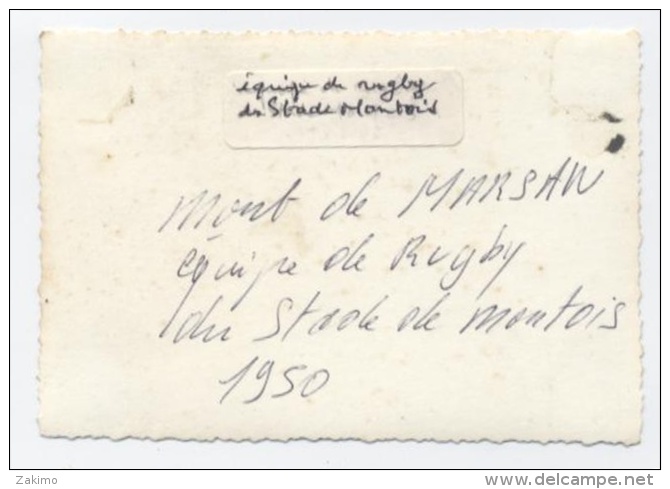 équipe de rugby
du Stade Montois
Mont de MARSAN
équipe de Rugby
du Stade de montois
1950
Zakimo
www.delcampe.net